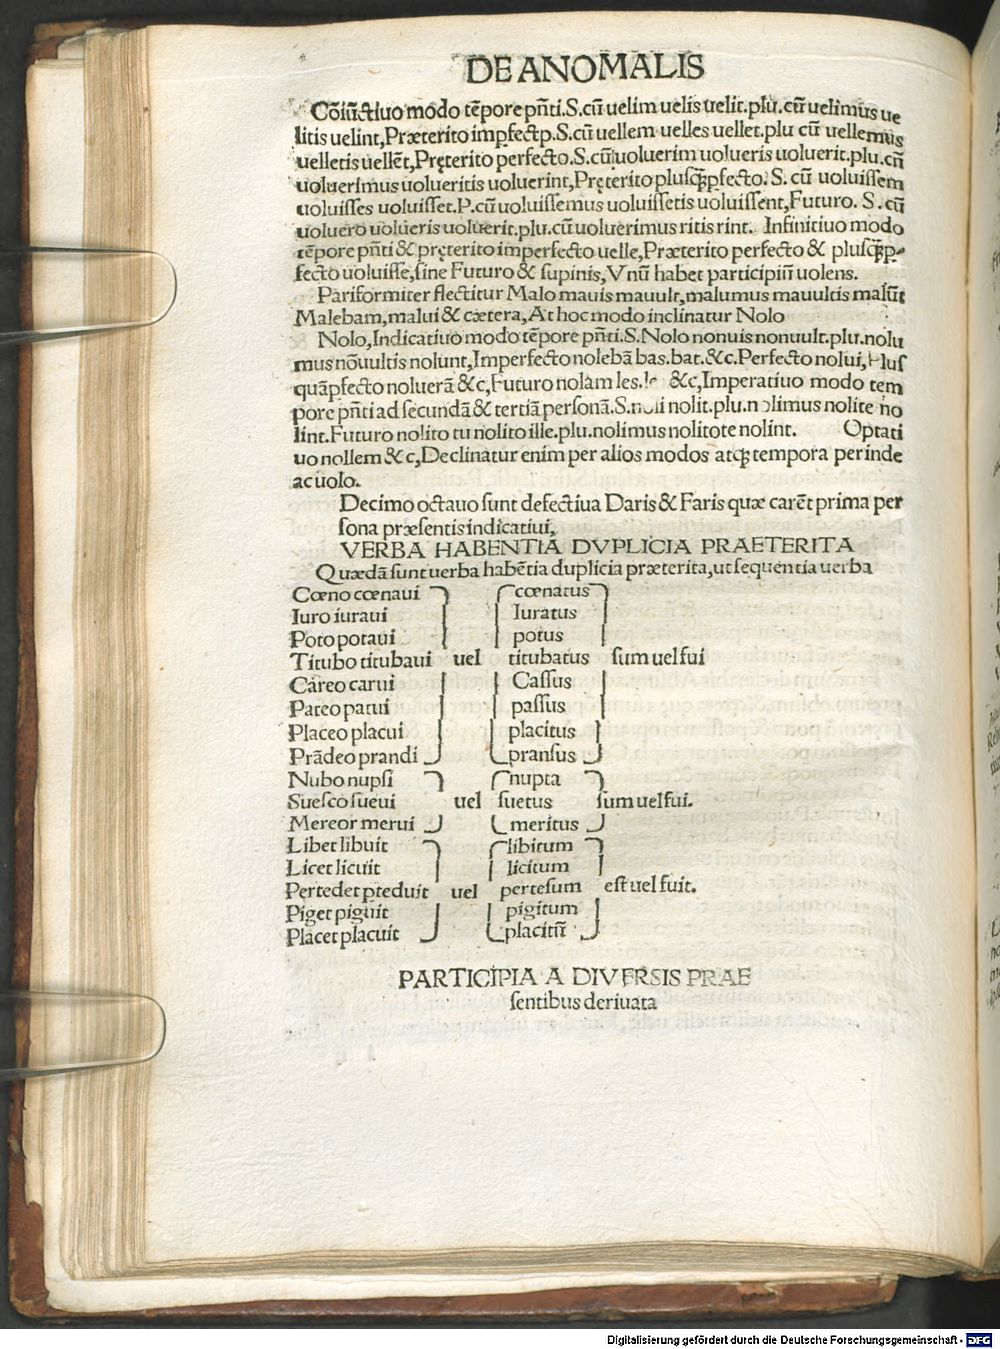 DE ANOMALIS
Cōiūctiuo modo tēpore pn̄ti.S.cū uelim uelis uelit.plu.cū uelimus ue
litis uelint,Præterito impfectp.S.cū uellem uelles uellet.plu cū uellemus
uelletis uellēt,Pręterito perfecto.S.cū uoluerim uolueris uoluerit.plu.cū
uoluerimus uolueritis uoluerint,Pręterito plusq̄pfecto.S. cū uoluissem
uoluisses uoluisset.P.cū uoluissemus uoluissetis uoluissent,Futuro. S. cū
uoluero uolueris uoluerit.plu.cū uoluerimus ritis rint. Infinitiuo modo
tēpore pn̄ti & pręterito imperfecto uelle,Præterito perfecto & plusq̄p-
fecto uoluisse,sine Futuro & supinis,Vnū habet participiū uolens.
Pariformiter flectitur Malo mauis mauult,malumus mauultis malūt
Malebam,malui & cætera,At hoc modo inclinatur Nolo
Nolo,Indicatiuo modo tēpore pn̄ti.S.Nolo nonuis nonuult.plu.nolu
mus nōuultis nolunt,Imperfecto nolebā bas.bat.&c.Perfecto nolui,Plus
quāpfecto noluerā &c,Futuro nolam les. &c,Imperatiuo modo tem
pore pn̄ti ad secundā & tertiā personā.S.noli nolit.plu.nolimus nolite no
lint.Futuro nolito tu nolito ille.plu.nolimus nolitote nolint. Optati
uo nollem & c,Declinatur enim per alios modos atq; tempora perinde
ac uolo.
Decimo octauo sunt defectiua Daris & Faris quæ carēt prima per
sona præsentis indicatiui,
VERBA HABENTIA DVPLICIA PRAETERITA
Quædā sunt uerba habētia duplicia præterita,ut sequentia uerba
Cœno cœnaui cœnatus
Iuro iuraui Iuratus
Poto potaui potus
Titubo titubaui uel titubatus sum uel fui
Careo carui Cassus
Pateo patui passus
Placeo placui placitus
Prādeo prandi pransus
Nubo nupsi nupta
Suesco sueui uel suetus sum uel fui.
Mereor merui meritus
Libet libuit libitum
Licet licuit licitum
Pertedet pteduit uel pertesum est uel fuit.
Piget piguit pigitum
Placet placuit placitū
PARTICIPIA A DIVERSIS PRAE
sentibus deriuata
Digitalisierung gefördert durch die Deutsche Forschungsgemeinschaft - DFG